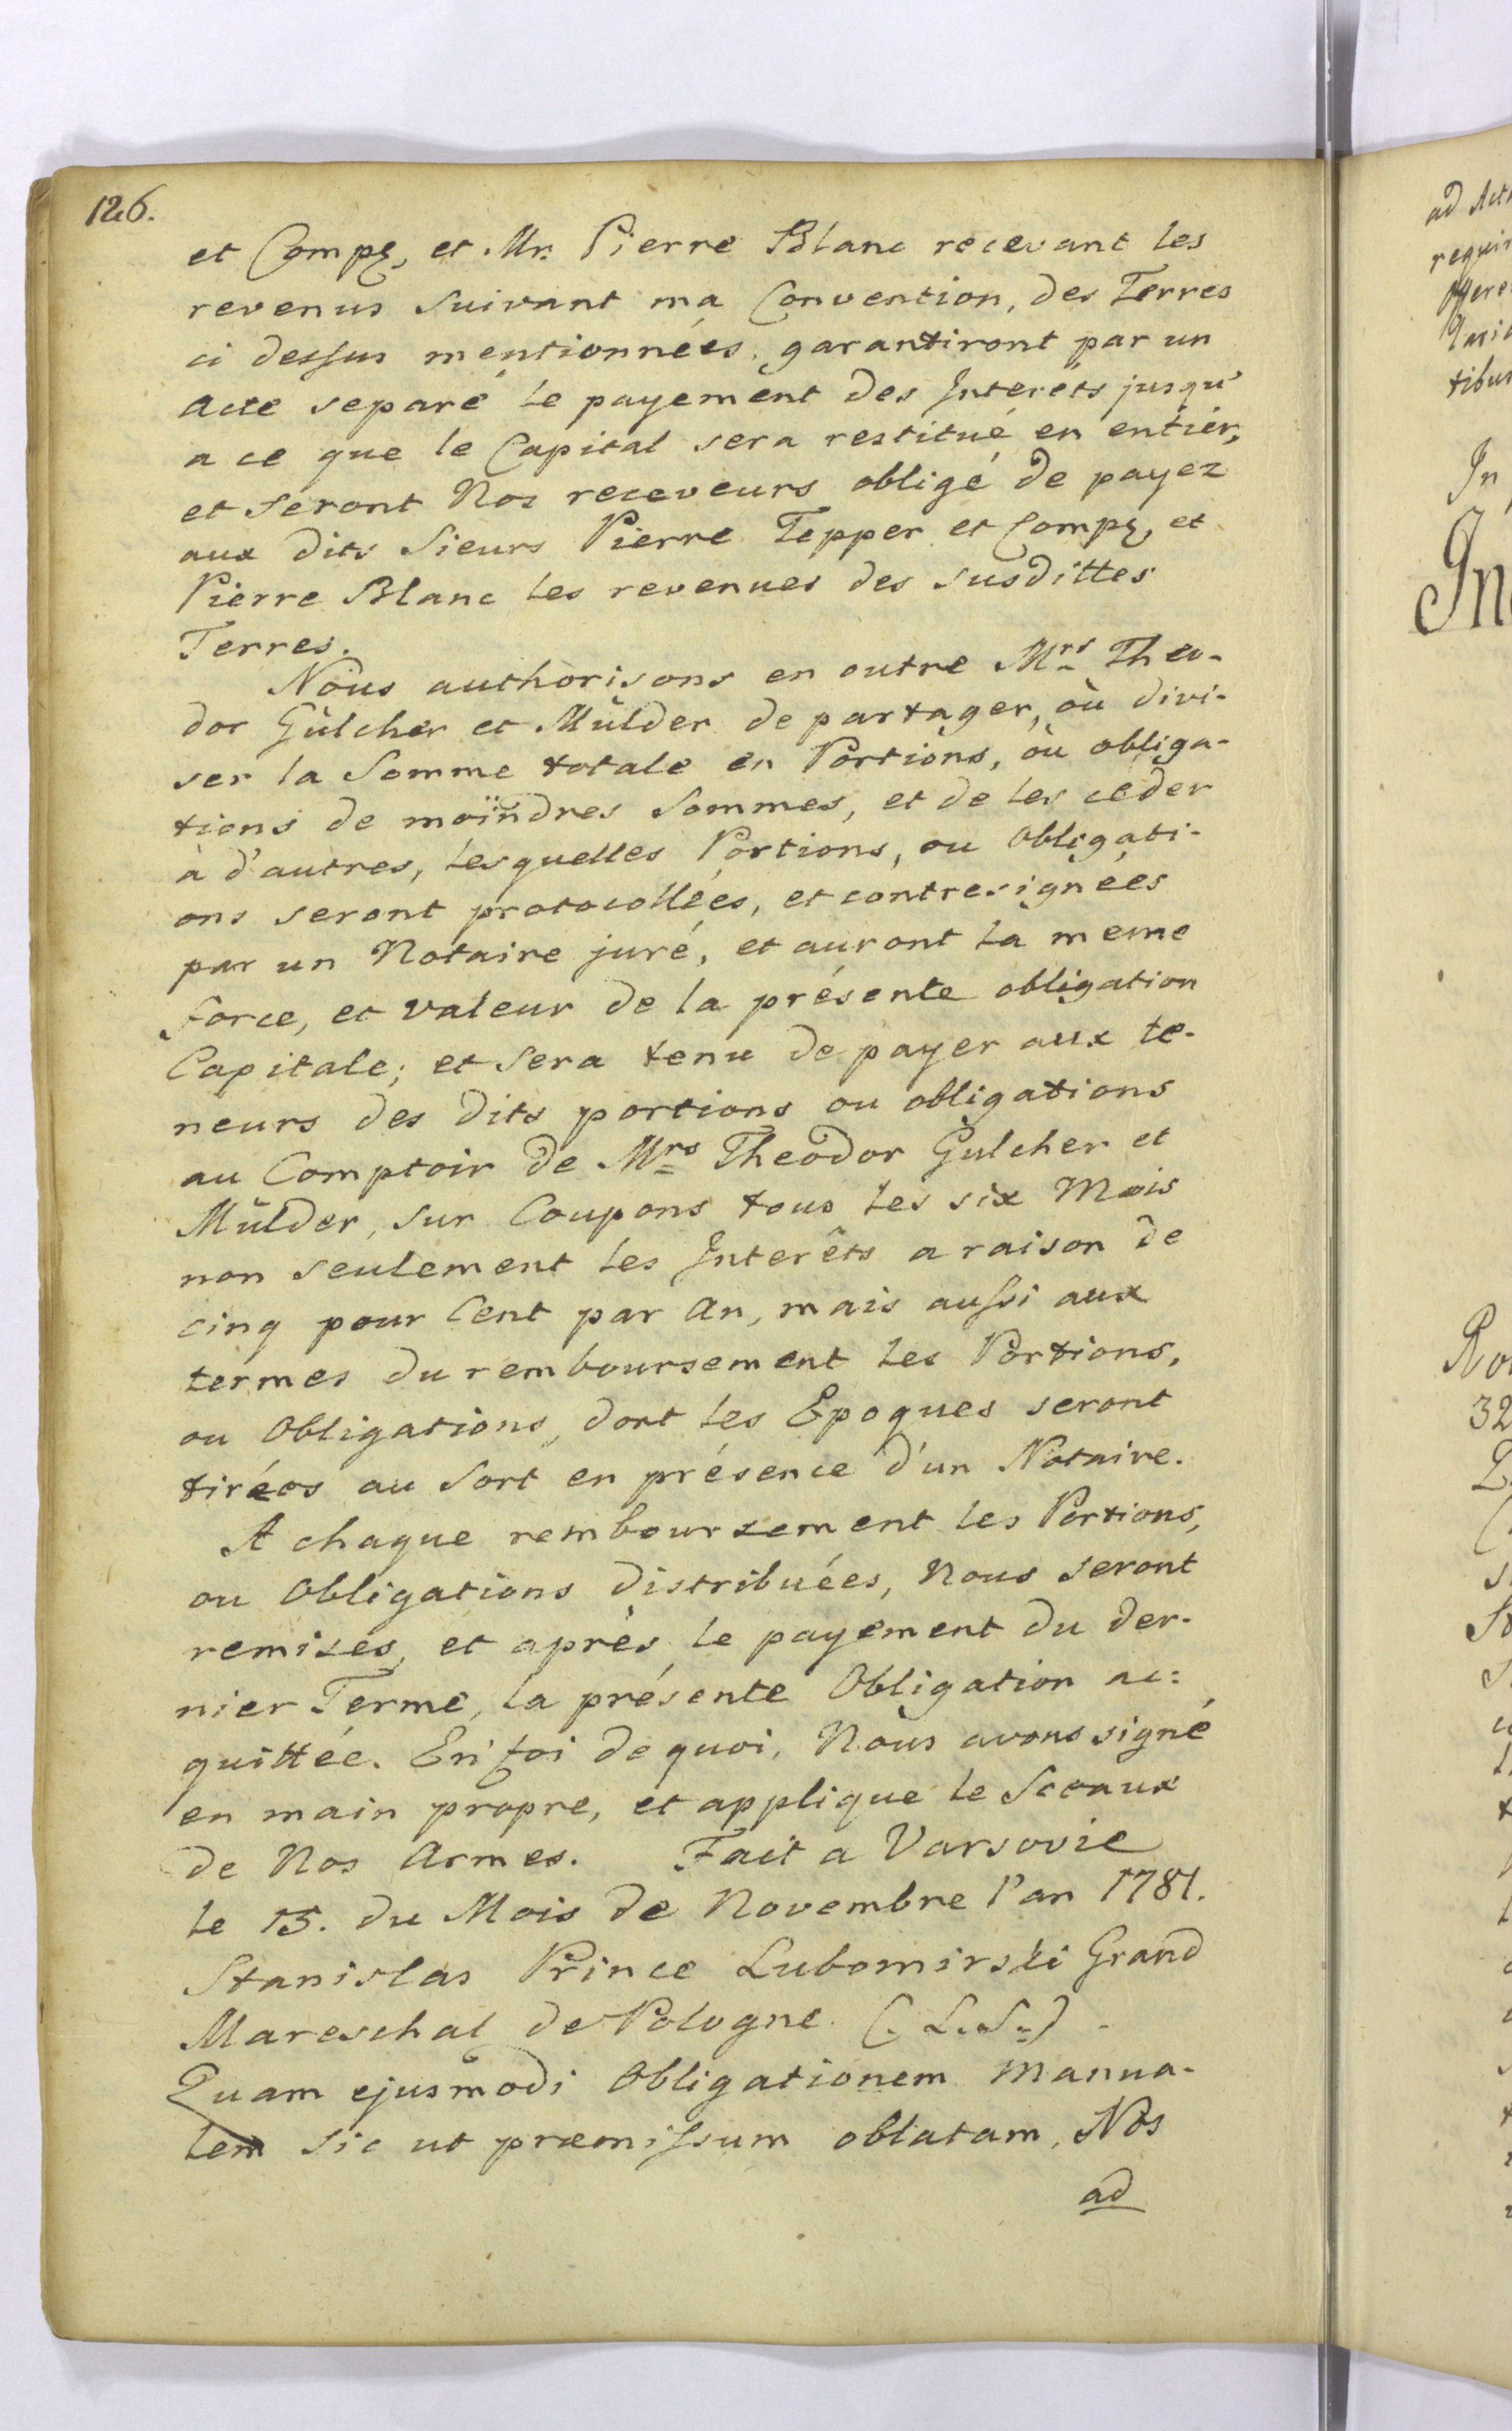 126.
et Compe, et Mr. Pierre Blanc recevant les
revenus suivant ma Convention, des Terres
ci dessus mentionnées, garantiront par un
Acte separé le payement des Interêts jusqu'
a ce que le Capital sera restitué en entier,
et seront Nos receveurs obligé de payez
aux dits Sieurs Pierre Tepper et Compe, et
Pierre Blanc les revenues des susdittes
Terres.
Nous authorisons en outre Mrs Theo-
dor Gülcher et Mülder de partager, où divi-
ser la Somme totale en Portions, où obliga-
tions de moïndres Sommes, et de les ceder
à d'autres, lesquelles Portions, ou Obligati-
ons seront protocollées, et contresignées
par un Notaire juré, et auront la meme
force, et valeur de la présente obligation
Capitale; et sera tenu de payer aux te-
neurs des dits portions ou obligations
au Comptoir de Mrs Theodor Gulcher et
Mülder, sur Coupons tous les six Mois
non seulement les Interêts a raison de
cinq pour Cent par An, mais aussi aux
termes du remboursement les Portions,
ou Obligations, dont les Epoques seront
tirées au Sort en présence d'un Notaire.
A chaque remboursement les Portions,
ou Obligations distribuées, Nous seront
remises, et après le payement du der-
nier Terme, la présente Obligation ac=
quittée. En foi de quoi, Nous avons signé
en main propre, et applique le Sceaux
de Nos Armes. Fait a Varsovie
le 15. du Mois de Novembre l'an 1781.
Stanislas Prince Lubomirski Grand
Mareschal de Pologne. (. L. S.)
Quam ejusmodi Obligationem manua-
lem sic ut præmissum oblatam, Nos
ad
ad
In
32